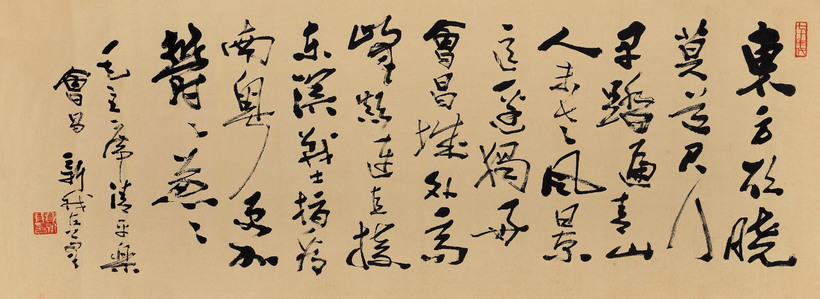 東方欲曉
莫道君行
早踏遍青山
人未老風景
這邊獨好
會昌城外高
峰顛連直接
东溟戰士指看
南粵更加
鬱〻葱〻
毛主席清平樂
會昌 新我左筆